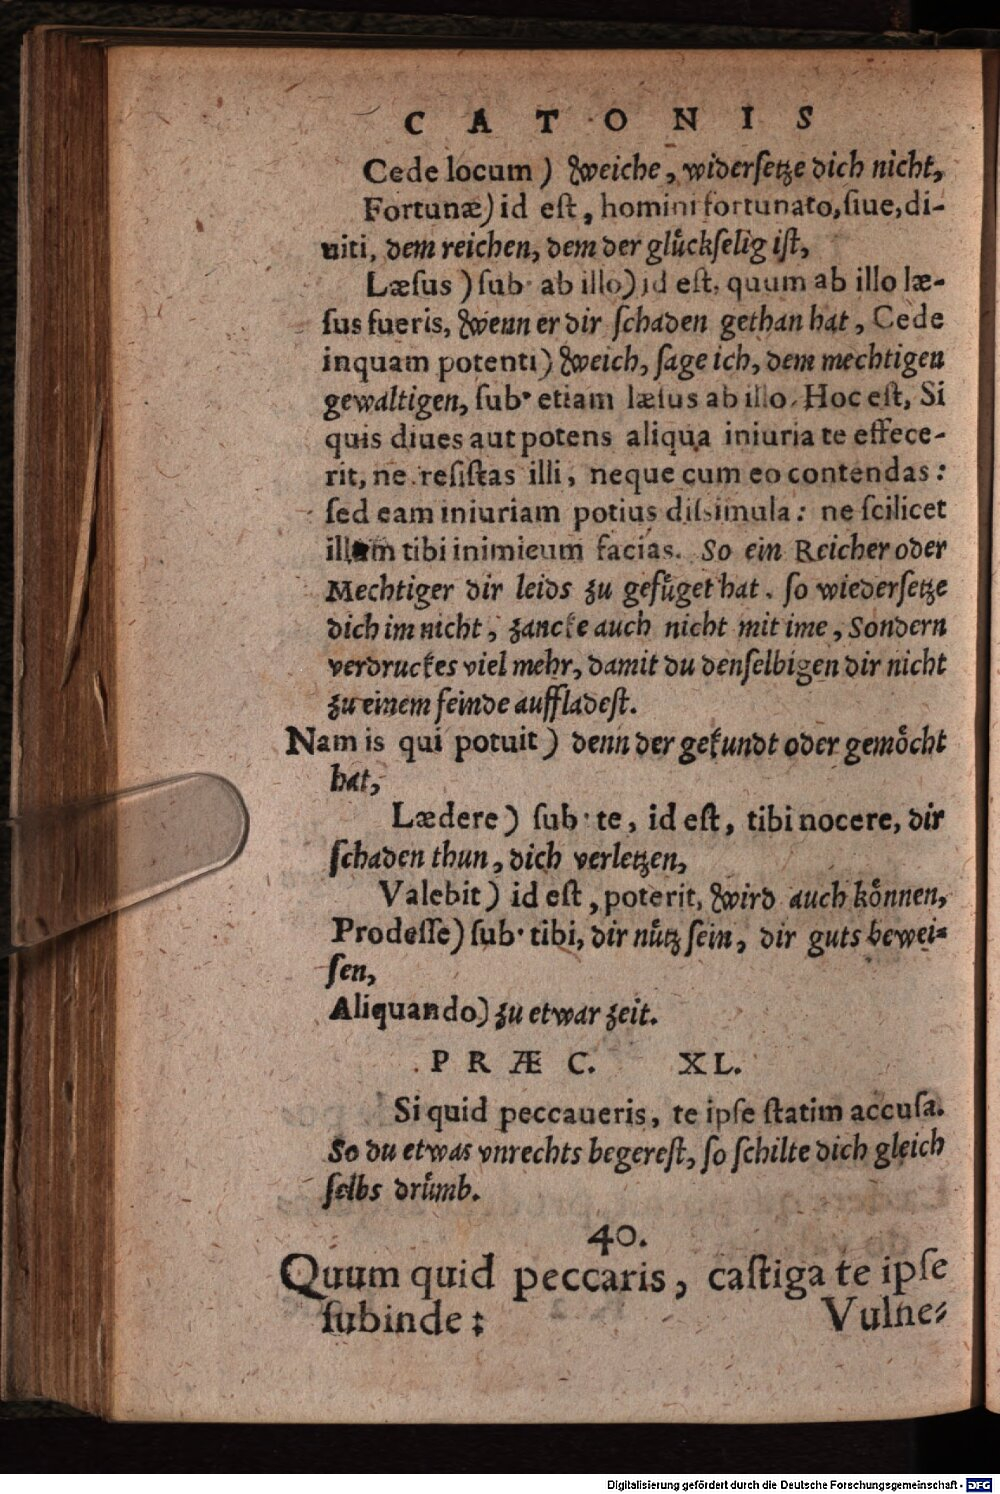 C A T O N I S
Cede locum ) weiche, widerſetze dich nicht,
Fortunæ) id eſt, homini fortunato, ſiue, di-
uiti, dem reichen, dem der glůckſelig iſt,
Læſus ) ſub· ab illo) id eſt, quum ab illo læ-
ſus fueris, wenn er dir ſchaden gethan hat, Cede
inquam potenti) weich, ſage ich, dem mechtigen
gewaltigen, ſub· etiam læſus ab illo. Hoc eſt, Si
quis diues aut potens aliqua iniuria te effece-
rit, ne reſiſtas illi, neque cum eo contendas:
ſed eam iniuriam potius diſsimula: ne ſcilicet
illum tibi inimicum facias. So ein Reicher oder
Mechtiger dir leids zu gefůget hat, ſo wiederſetze
dich im nicht, zancke auch nicht mit ime, Sondern
verdruckes viel mehr, damit du denſelbigen dir nicht
zu einem feinde auffladeſt.
Nam is qui potuit ) denn der gekundt oder gemoͤcht
hat,
Lædere ) ſub· te, id eſt, tibi nocere, dir
ſchaden thun, dich verletzen,
Valebit ) id eſt, poterit, wird auch koͤnnen,
Prodeſſe) ſub· tibi, dir nůtz ſein, dir guts bewei-
ſen,
Aliquando) zu etwar zeit.
P R Æ C. XL.
Si quid peccaueris, te ipſe ſtatim accuſa.
So du etwas vnrechts begereſt, ſo ſchilte dich gleich
ſelbs drůmb.
40.
Quum quid peccaris, caſtiga te ipſe
ſubinde:
Vulne-
Digitalisierung gefördert durch die Deutsche Forschungsgemeinschaft - DFG